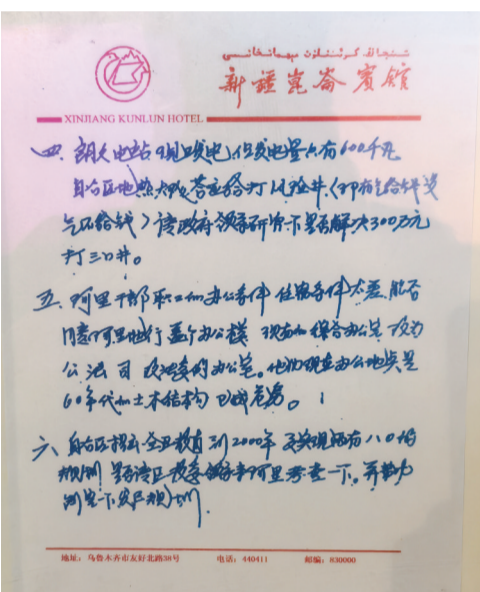 新疆昆仑宾馆
XINJIANG KUNLUN HOTEL
四、朗久电站现发电,但发电量只有600千瓦
自治区地热大队答应给打风险井(即有气给钱没
气不给钱)请政府领导研究下是否解决300万元
打三口井。
五、阿里干部职工的办公条件住宿条件太差,能否
同意阿里地行盖个办公楼 现在的综合办公室改为
公 法 司 政法委的办公室。他们现在办公地点是
60年代的土木结构已成危房。
六、自治区提出 教育到2000年 要实现 有八0%
规划 是否请区 领导来阿里考查一下。并帮助
制定一下发展规划
地址:乌鲁木齐市友好北路38号 电话:440411 邮编:830000